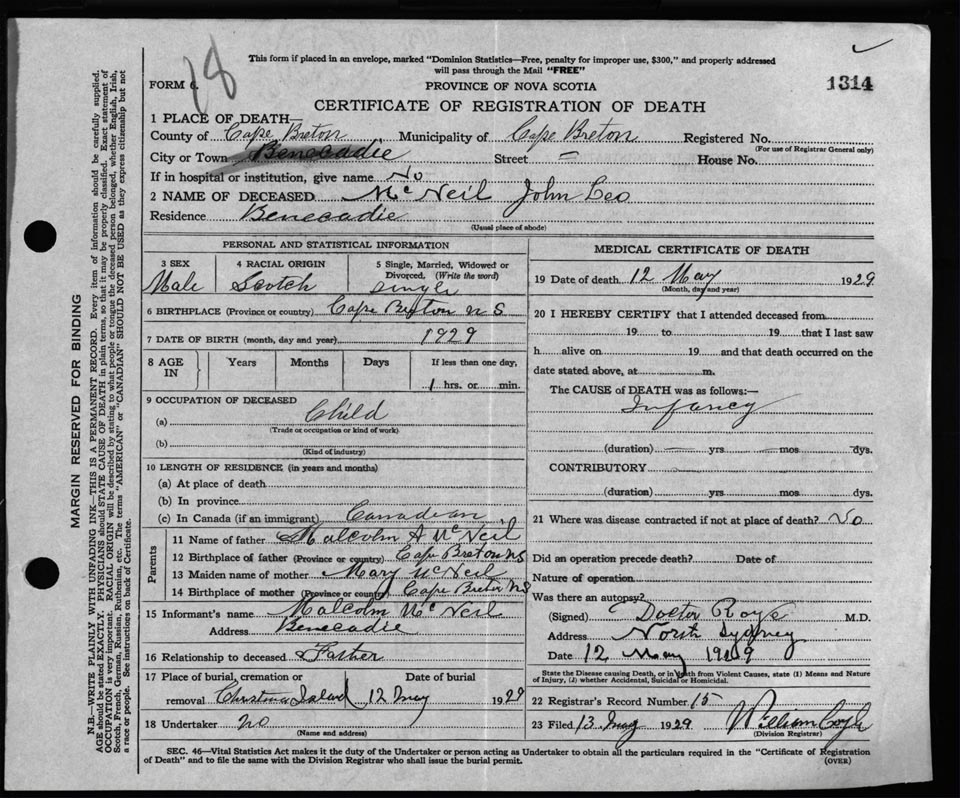 18
This form if placed in an envelope, marked "Dominion Statistics—Free, penalty for improper use, $300," and properly addressed
will pass through the Mail "FREE"
FORM 6.
PROVINCE OF NOVA SCOTIA
1314
CERTIFICATE OF REGISTRATION OF DEATH
1 PLACE OF DEATH—
County of Cape Breton Municipality of Cape Breton Registered No.
(For use of Registrar General only)
City or Town Benecadie Street = House No.
If in hospital or institution, give name No
2 NAME OF DECEASED McNeil John Leo
Residence Benecadie
(Usual place of abode)
PERSONAL AND STATISTICAL INFORMATION
3 SEX 4 RACIAL ORIGIN 5 Single, Married, Widowed or Divorced. (Write the word)
Male Scotch Single
6 BIRTHPLACE (Province or country) Cape Breton N S
7 DATE OF BIRTH (month, day and year) 1929
8 AGE IN Years Months Days If less than one day,
1 hrs. or min.
9 OCCUPATION OF DECEASED
(a) Child
(Trade or occupation or kind of work)
(b)
(Kind of industry)
10 LENGTH OF RESIDENCE (in years and months)
(a) At place of death
(b) In province
(c) In Canada (if an immigrant) Canadian
Parents
11 Name of father Malcolm A McNeil
12 Birthplace of father (Province or country) Cape Breton NS
13 Maiden name of mother Mary McNeil
14 Birthplace of mother (Province or country) Cape Breton NS
15 Informant's name Malcolm McNeil
Address Benecadie
16 Relationship to deceased Father
17 Place of burial, cremation or removal Date of burial
Christmas Island 12 May 1929
18 Undertaker no
(Name and address)
MEDICAL CERTIFICATE OF DEATH
19 Date of death 12 May 1929
(Month, day and year)
20 I HEREBY CERTIFY that I attended deceased from
19 to 19 that I last saw
h alive on 19 and that death occurred on the
date stated above, at m.
The CAUSE of DEATH was as follows:—
Infancy
(duration) yrs. mos. dys.
CONTRIBUTORY
(duration) yrs. mos. dys.
21 Where was disease contracted if not at place of death? No
Did an operation precede death? Date of
Nature of operation
Was there an autopsy?
(Signed) Doctor M.D.
Address North Sydney
Date 12 May 1929
State the Disease causing Death, or in Death from Violent Causes, state (1) Means and Nature
of Injury, (2) whether Accidental, Suicidal or Homicidal.
22 Registrar's Record Number 15
23 Filed 13 May 1929 William
(Division Registrar)
SEC. 46—Vital Statistics Act makes it the duty of the Undertaker or person acting as Undertaker to obtain all the particulars required in the "Certificate of Registration
of Death" and to file the same with the Division Registrar who shall issue the burial permit. (OVER)
MARGIN RESERVED FOR BINDING
N.B.—WRITE PLAINLY WITH UNFADING INK—THIS IS A PERMANENT RECORD. Every item of information should be carefully supplied.
AGE should be stated EXACTLY. PHYSICIANS should STATE CAUSE OF DEATH in plain terms, so that it may be properly classified. Exact statement of
OCCUPATION is very important. RACIAL ORIGIN will be described by stating to what people or tongue the deceased person belonged, whether English, Irish,
Scotch, French, German, Russian, Ruthenian, etc. The terms "AMERICAN" or "CANADIAN" SHOULD NOT BE USED as they express citizenship but not
a race or people. See instructions on back of Certificate.